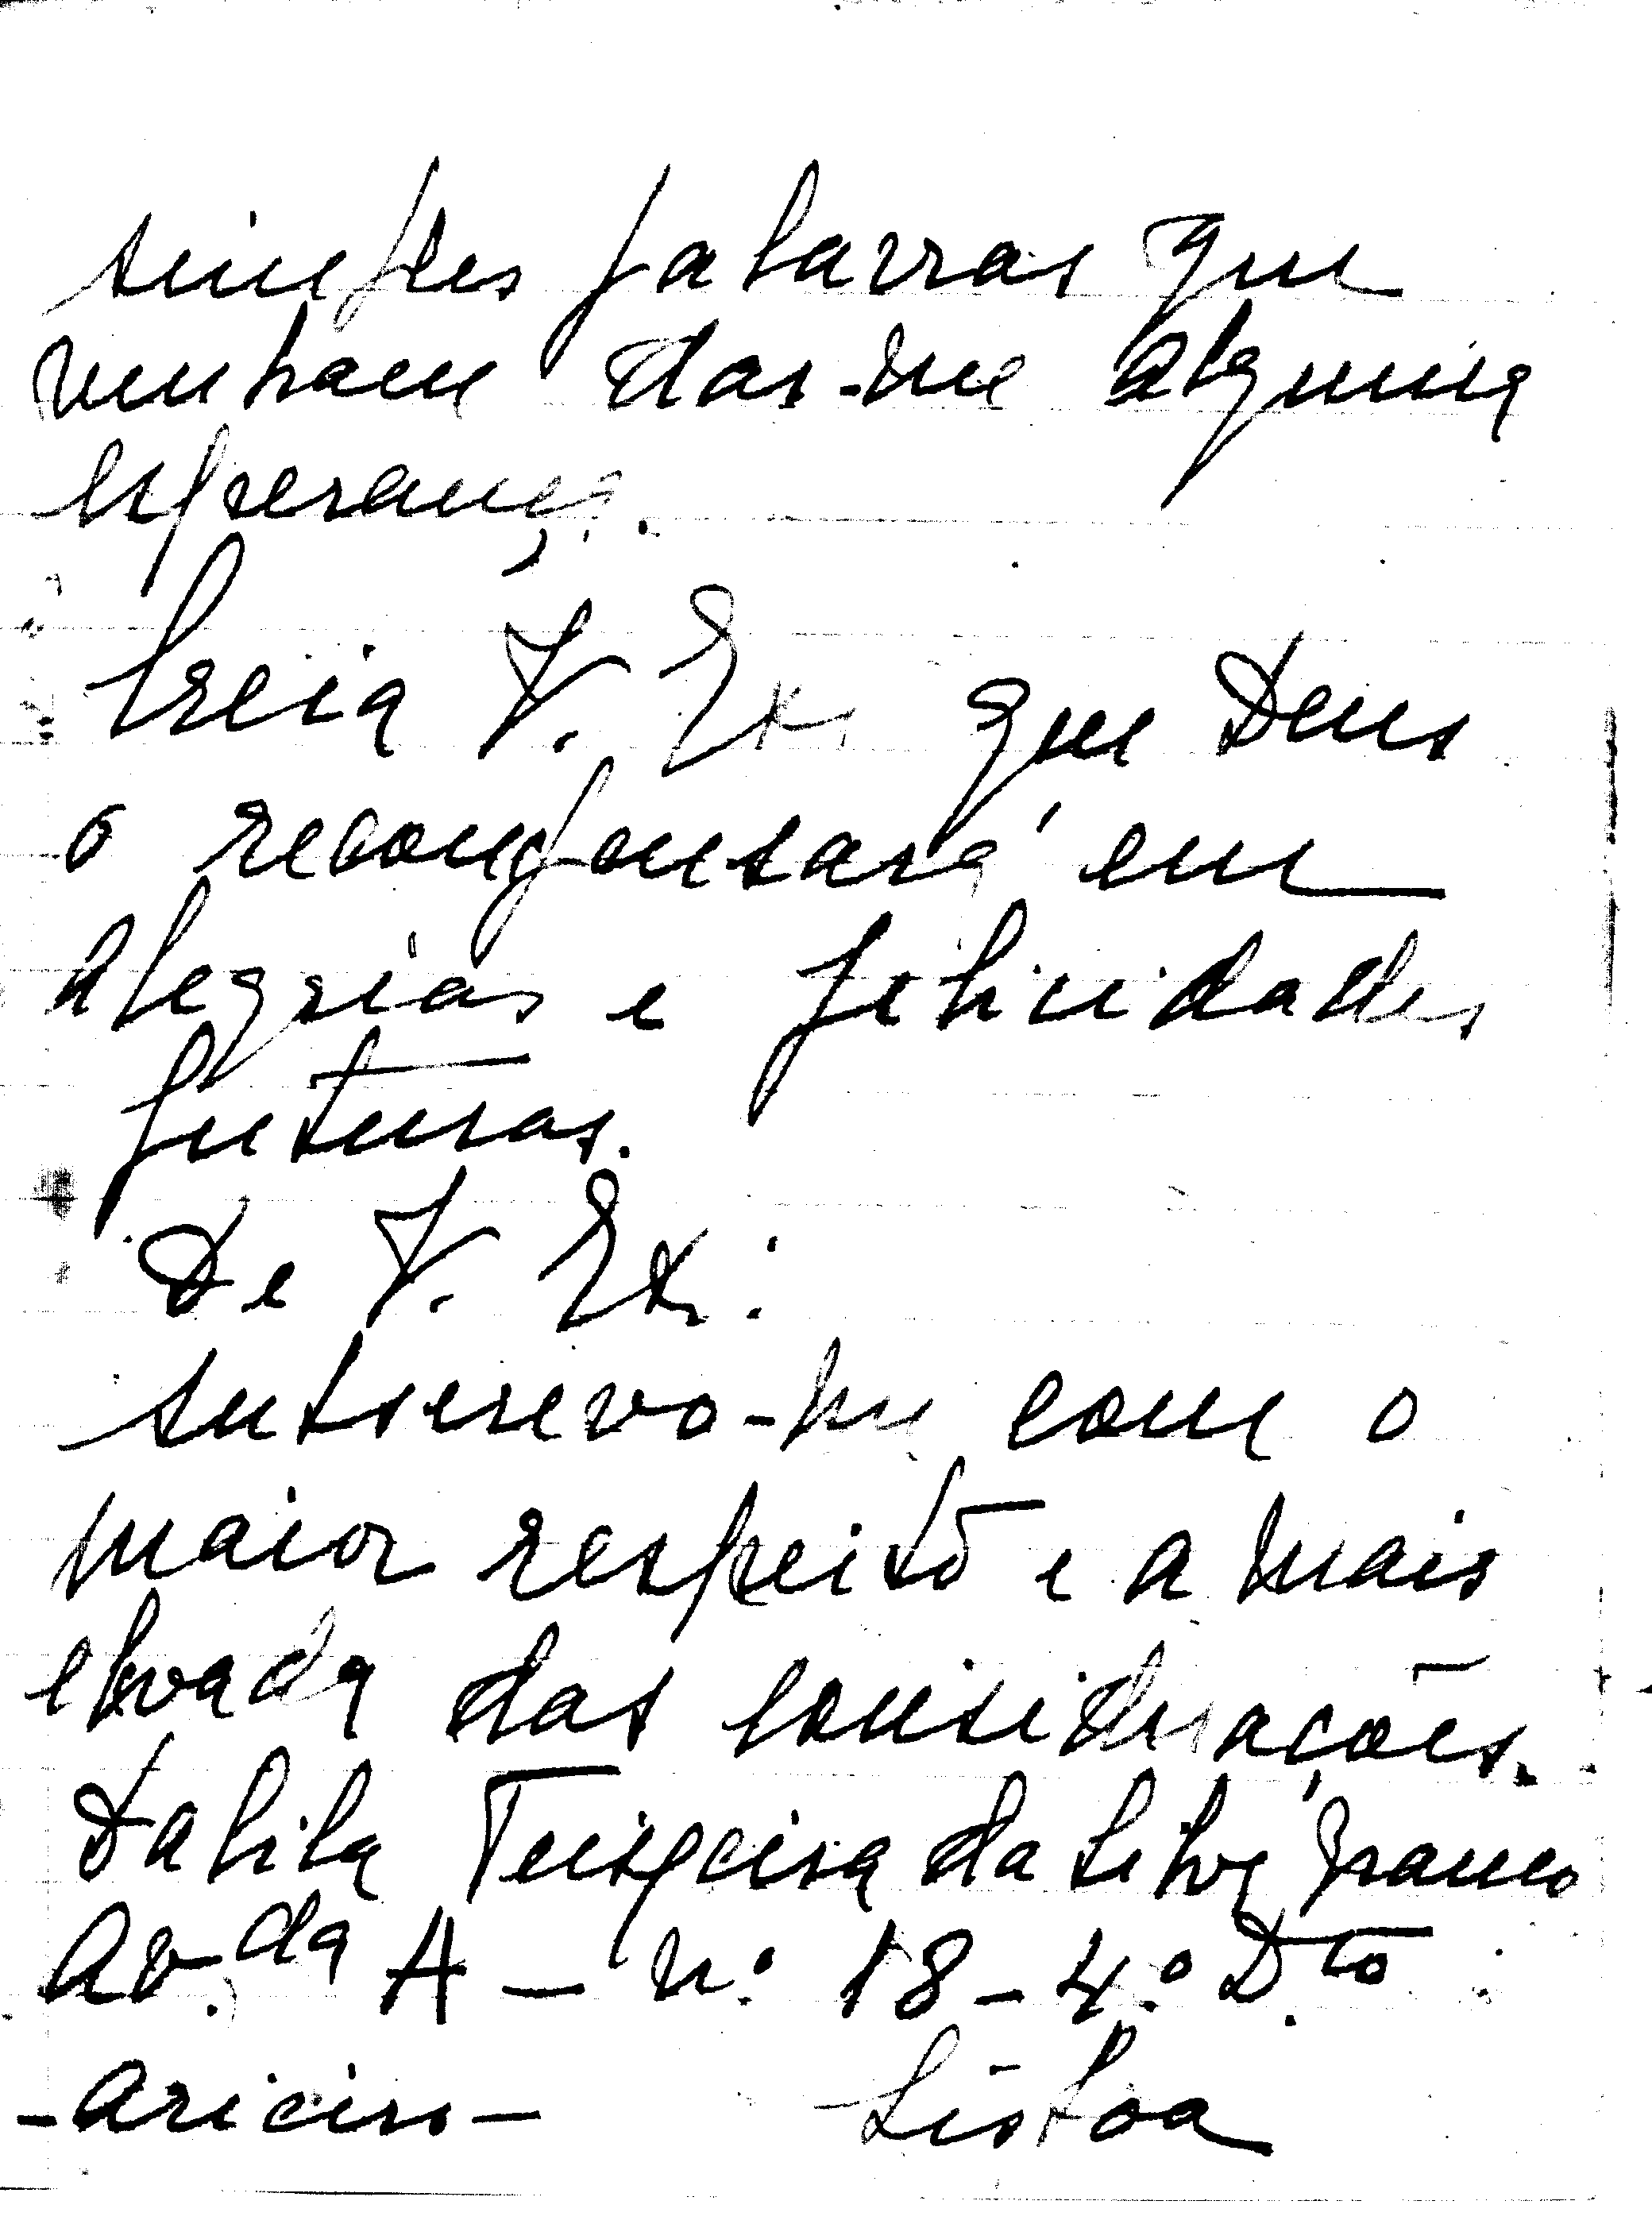 simples palavras que
venham dar-me alguma
esperança.
Creia V. Ex. que Deus
o recompensará em
alegrias e felicidades
futuras.
De V. Ex.:
subscrevo-me com o
maior respeito e a mais
elevada das considerações.
Dalila Teixeira da Silva Franco
Av.da A - nº 18 - 4.º D.to
- Areeiro - Lisboa